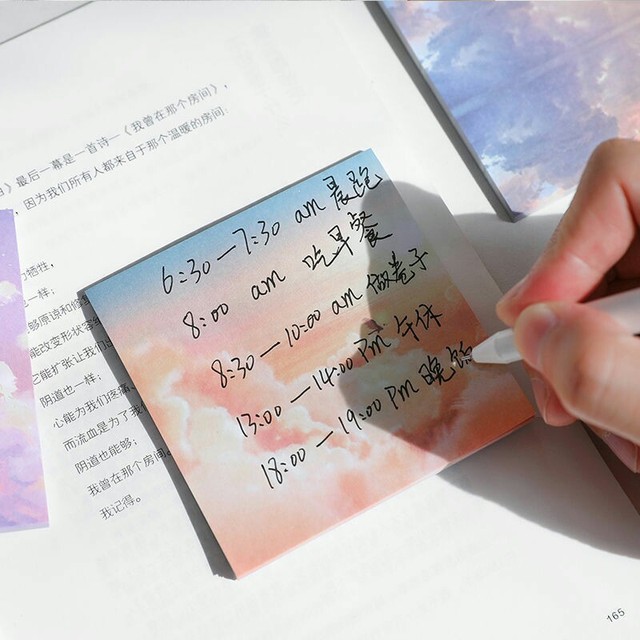 》最后一幕是一首诗—《我曾在那个房间》,
,因为我们所有人都来自于那个温暖的房间:
6:30—7:30 am 晨跑
8:00 am 吃早餐
8:30—10:00 am 做卷子
13:00—14:00 Pm 午休
18:00—19:00 Pm 晚饭
牺牲,
一样;
够原谅和修
能改变形状
能扩张让我们
阴道也一样;
心能为我们疼痛
而流血是为了我
阴道也能够;
我曾在那个房间。
我记得。
165